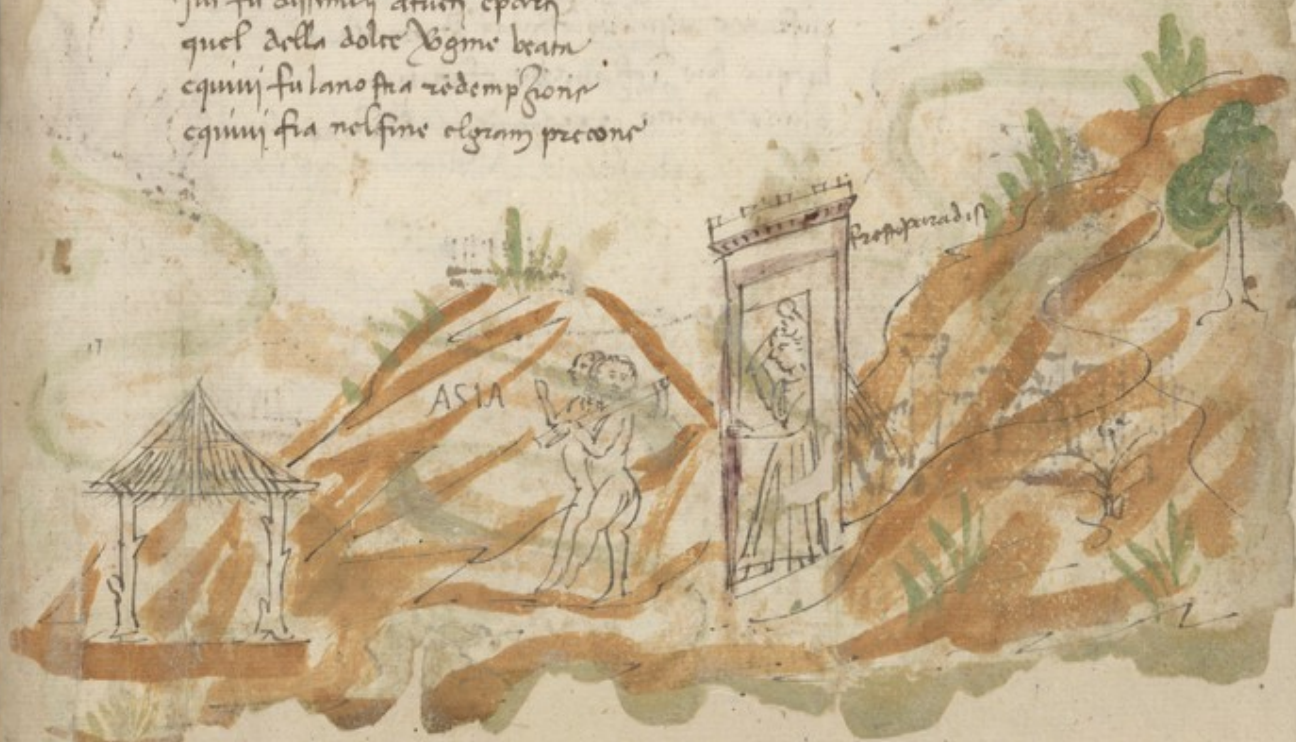 quel della dolce Vgine beata
equiui fu lanostra redempzione
equiui fia nelfine elgram precone
ASIA